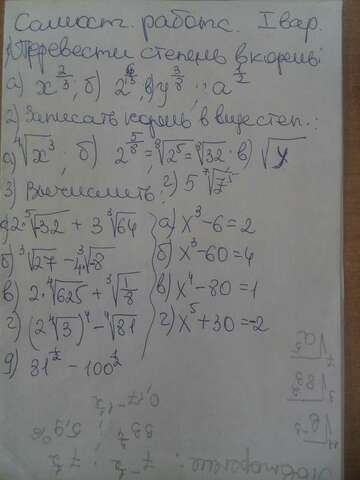 Самост. работа. I вар.
1) Перевести степень в корень:
а) x^{2/3}; б) 2^{6/13}; в) y^{3/8}; a^{1/2}
2) Записать корень в виде степ.:
а) ∜x³; б) 2^{5/8} = ⁸√2⁵ = ⁸√32 · в) √y
г) 5 ⁷√7⁵
3) Вычислить:
а) 2·⁵√-32 + 3 ³√64
б) ³√27 - ³√-8
в) 2·∜625 + ³√(1/8)
г) (2∜3)⁴ - ∜81
д) 81^{1/2} - 100^{1/2}
а) x³ - 6 = 2
б) x³ - 60 = 4
в) x⁴ - 80 = 1
г) x⁵ + 30 = -2
Повторение: